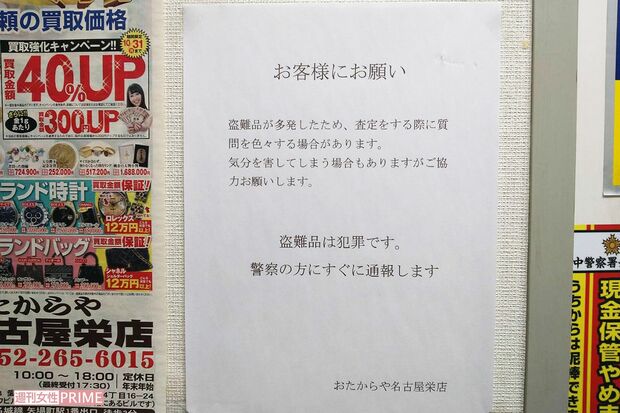 頼の買取価格
買取強化キャンペーン!!
10/31
買取金額
40%UP
300円UP
724,900円
252,000円
517,200円
1,688,000円
ランド時計
買取金額保証!!
ロレックス
12万円以上!
ランドバッグ
買取金額保証!!
シャネル
12万円以上!
たからや
古屋栄店
52-265-6015
10:00~18:00
(最終受付17:30)
定休日
年末年始
4丁目16-24
週刊女性PRIME
お客様にお願い
盗難品が多発したため、査定をする際に質
問を色々する場合があります。
気分を害してしまう場合もありますがご協
力お願いします。
盗難品は犯罪です。
警察の方にすぐに通報します
おたからや名古屋栄店
中警察署
現金保管やめ
うちからは泥棒でき